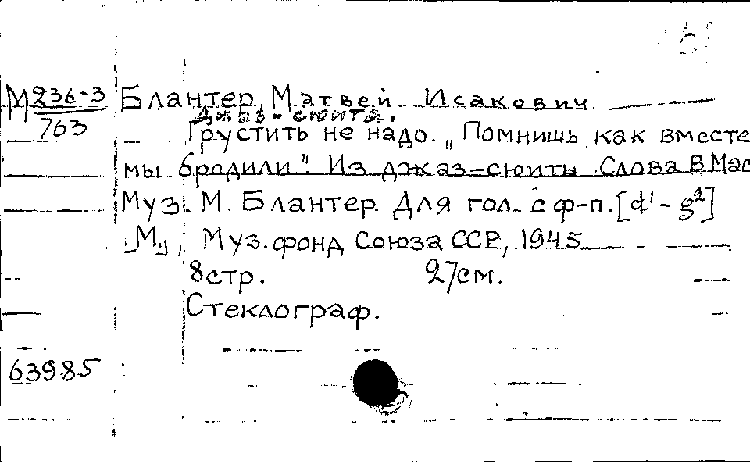 М 236-3 Блантер, Матвей Исакович
763 Джаз-сюита.
Грустить не надо. „Помнишь, как вместе
мы бродили". Из джаз-сюиты. Слова В. Мас
Муз. М. Блантер. Для гол. с ф-п. [d¹ - g²]
„М„ Муз. фонд Союза ССР, 1945
8 стр. 27 см.
Стеклограф.
63985